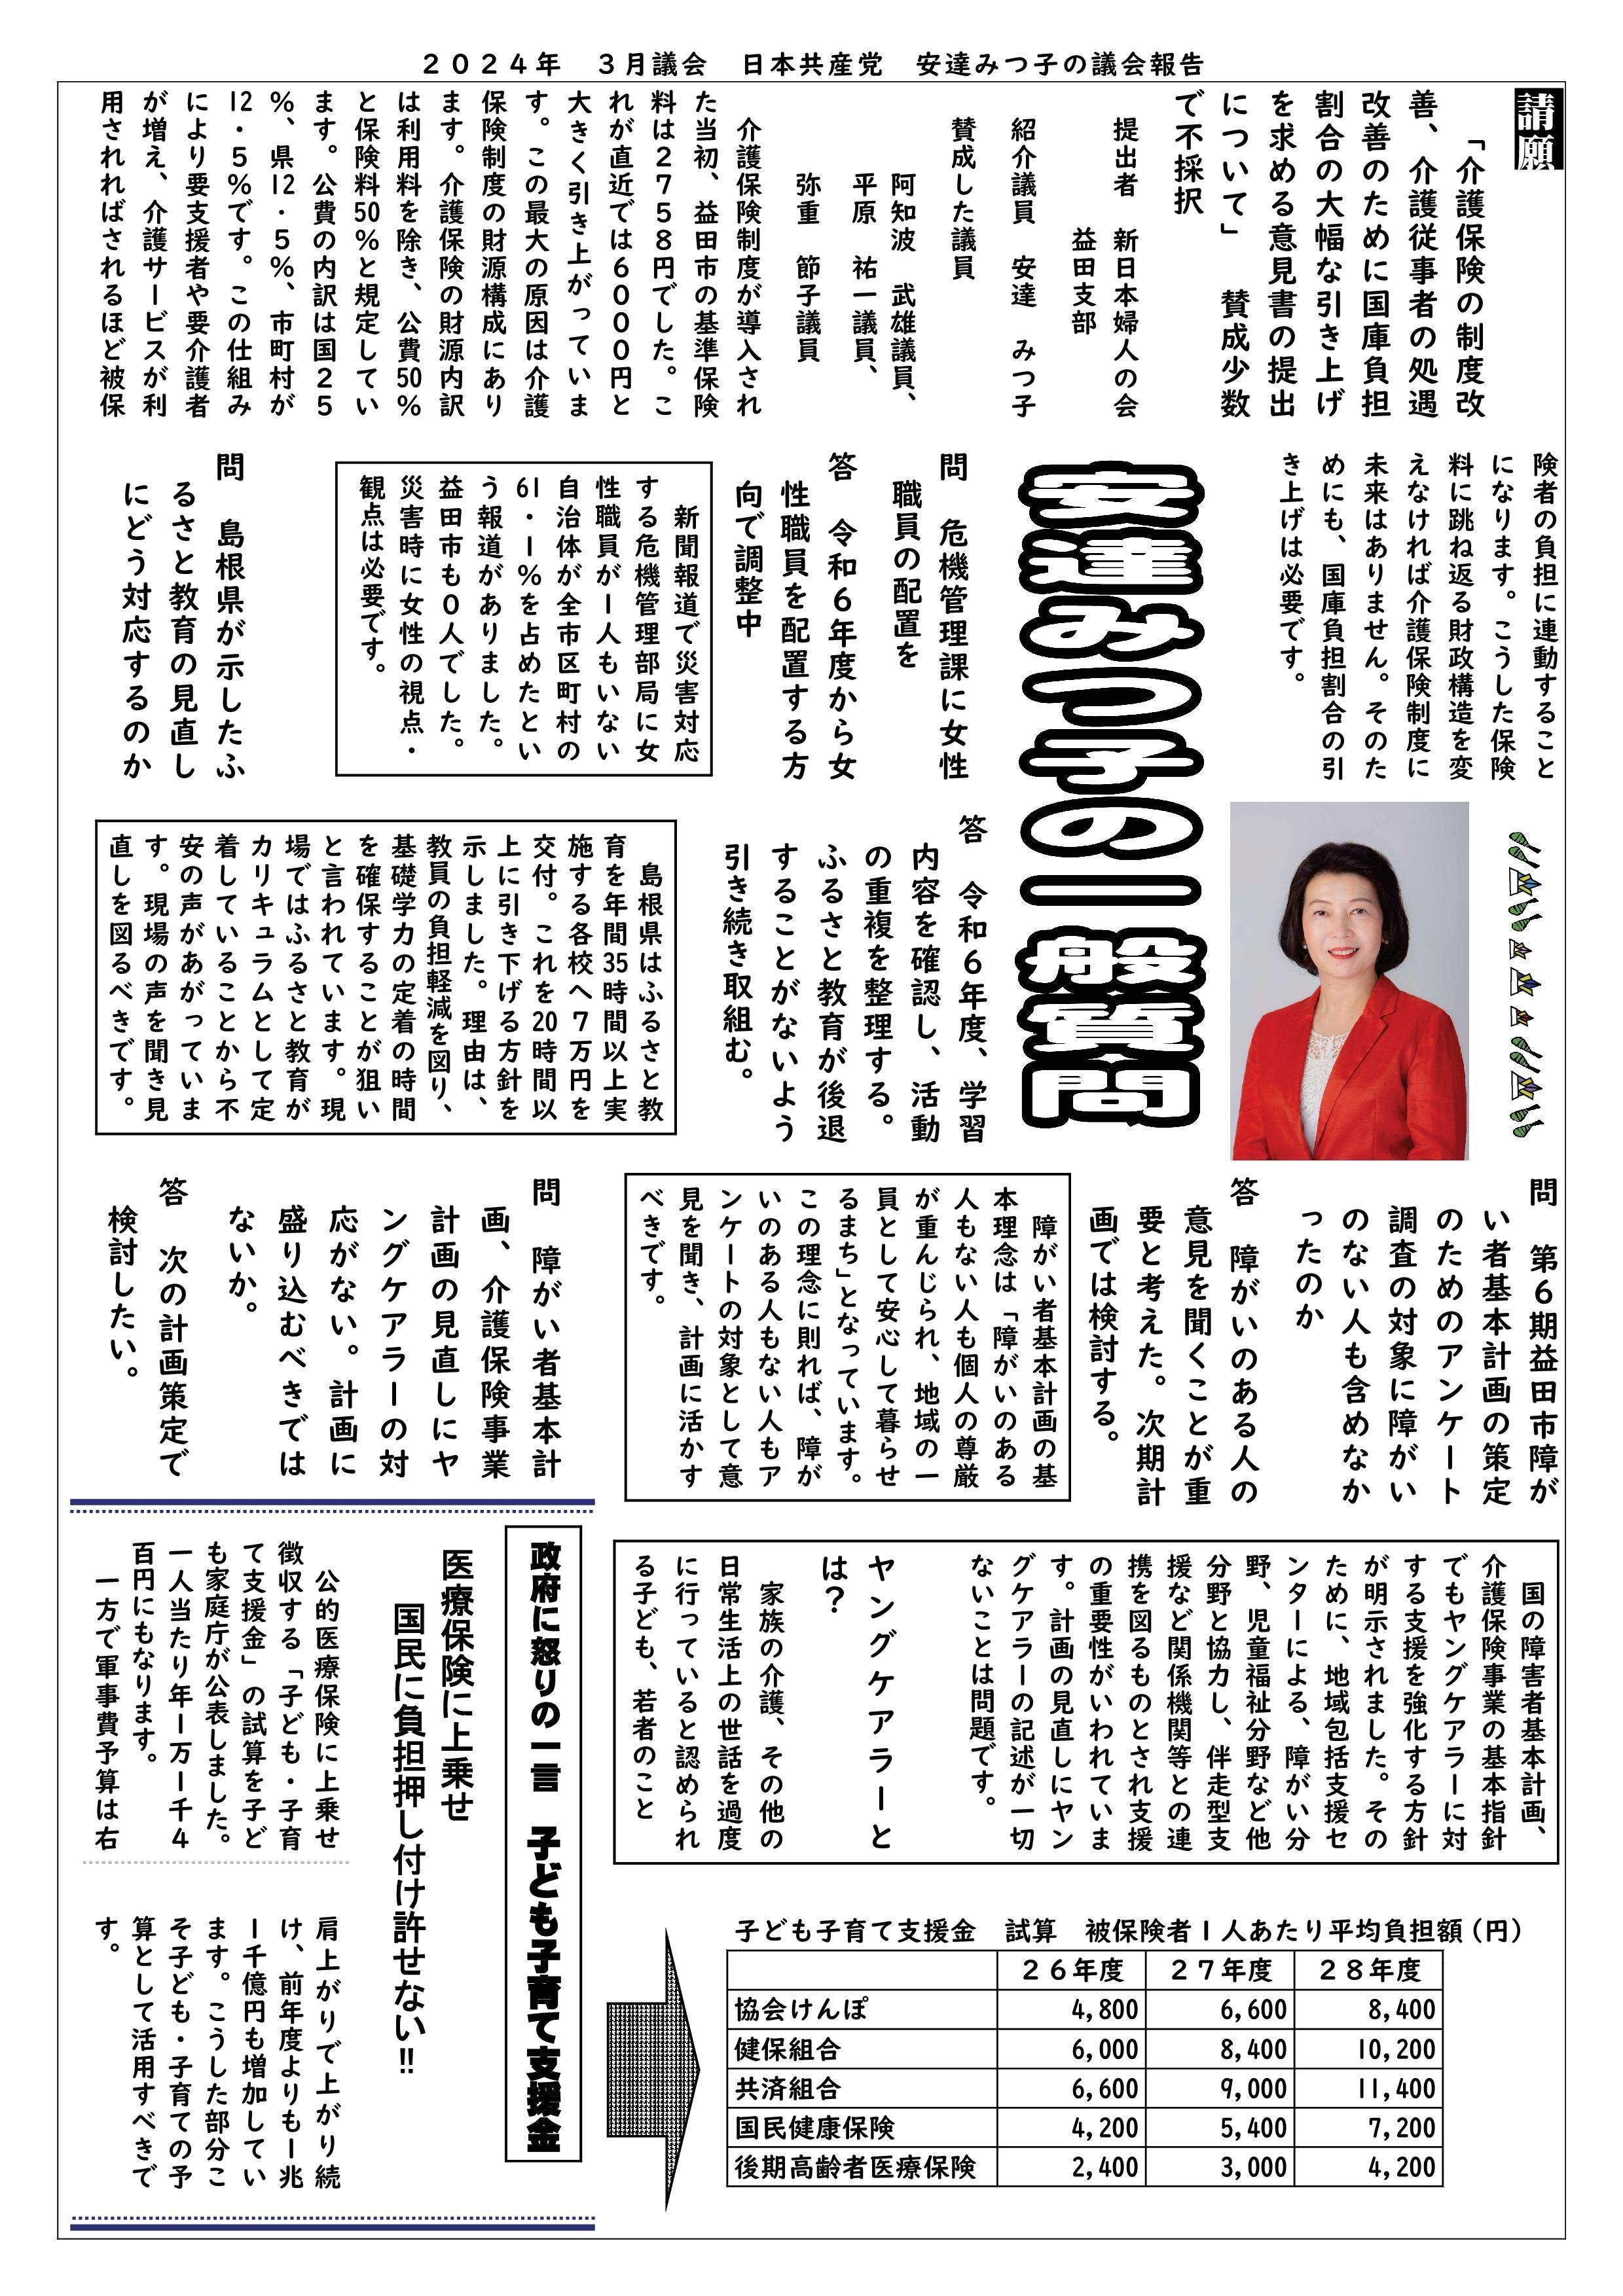 ２０２４年　３月議会　日本共産党　安達みつ子の議会報告
請願
「介護保険の制度改
善、介護従事者の処遇
改善のために国庫負担
割合の大幅な引き上げ
を求める意見書の提出
について」　賛成少数
で不採択
提出者　新日本婦人の会
益田支部
紹介議員　安達　みつ子
賛成した議員
阿知波　武雄議員、
平原　祐一議員、
弥重　節子議員
介護保険制度が導入され
た当初、益田市の基準保険
料は２７５８円でした。こ
れが直近では６０００円と
大きく引き上がっていま
す。この最大の原因は介護
保険制度の財源構成にあり
ます。介護保険の財源内訳
は利用料を除き、公費50％
と保険料50％と規定してい
ます。公費の内訳は国２５
％、県12・５％、市町村が
12・５％です。この仕組み
により要支援者や要介護者
が増え、介護サービスが利
用されればされるほど被保
険者の負担に連動すること
になります。こうした保険
料に跳ね返る財政構造を変
えなければ介護保険制度に
未来はありません。そのた
めにも、国庫負担割合の引
き上げは必要です。
安達みつ子の一般質問
問　危機管理課に女性
職員の配置を
答　令和６年度から女
性職員を配置する方
向で調整中
新聞報道で災害対応
する危機管理部局に女
性職員が１人もいない
自治体が全市区町村の
61・１％を占めたとい
う報道がありました。
益田市も０人でした。
災害時に女性の視点・
観点は必要です。
問　島根県が示したふ
るさと教育の見直し
にどう対応するのか
答　令和６年度、学習
内容を確認し、活動
の重複を整理する。
ふるさと教育が後退
することがないよう
引き続き取組む。
島根県はふるさと教
育を年間35時間以上実
施する各校へ７万円を
交付。これを20時間以
上に引き下げる方針を
示しました。理由は、
教員の負担軽減を図り、
基礎学力の定着の時間
を確保することが狙い
と言われています。現
場ではふるさと教育が
カリキュラムとして定
着していることから不
安の声があがっていま
す。現場の声を聞き見
直しを図るべきです。
問　第６期益田市障が
い者基本計画の策定
のためのアンケート
調査の対象に障がい
のない人も含めなか
ったのか
答　障がいのある人の
意見を聞くことが重
要と考えた。次期計
画では検討する。
障がい者基本計画の基
本理念は「障がいのある
人もない人も個人の尊厳
が重んじられ、地域の一
員として安心して暮らせ
るまち」となっています。
この理念に則れば、障が
いのある人もない人もア
ンケートの対象として意
見を聞き、計画に活かす
べきです。
問　障がい者基本計
画、介護保険事業
計画の見直しにヤ
ングケアラーの対
応がない。計画に
盛り込むべきでは
ないか。
答　次の計画策定で
検討したい。
国の障害者基本計画、
介護保険事業の基本指針
でもヤングケアラーに対
する支援を強化する方針
が明示されました。その
ために、地域包括支援セ
ンターによる、障がい分
野、児童福祉分野など他
分野と協力し、伴走型支
援など関係機関等との連
携を図るものとされ支援
の重要性がいわれていま
す。計画の見直しにヤン
グケアラーの記述が一切
ないことは問題です。
ヤングケアラーと
は？
家族の介護、その他の
日常生活上の世話を過度
に行っていると認められ
る子ども、若者のこと
政府に怒りの一言　子ども子育て支援金
医療保険に上乗せ
国民に負担押し付け許せない‼
公的医療保険に上乗せ
徴収する「子ども・子育
て支援金」の試算を子ど
も家庭庁が公表しました。
一人当たり年１万１千４
百円にもなります。
一方で軍事費予算は右
肩上がりで上がり続
け、前年度よりも１兆
１千億円も増加してい
ます。こうした部分こ
そ子ども・子育ての予
算として活用すべきで
す。
子ども子育て支援金　試算　被保険者１人あたり平均負担額（円）
２６年度　２７年度　２８年度
協会けんぽ　4,800　6,600　8,400
健保組合　6,000　8,400　10,200
共済組合　6,600　9,000　11,400
国民健康保険　4,200　5,400　7,200
後期高齢者医療保険　2,400　3,000　4,200